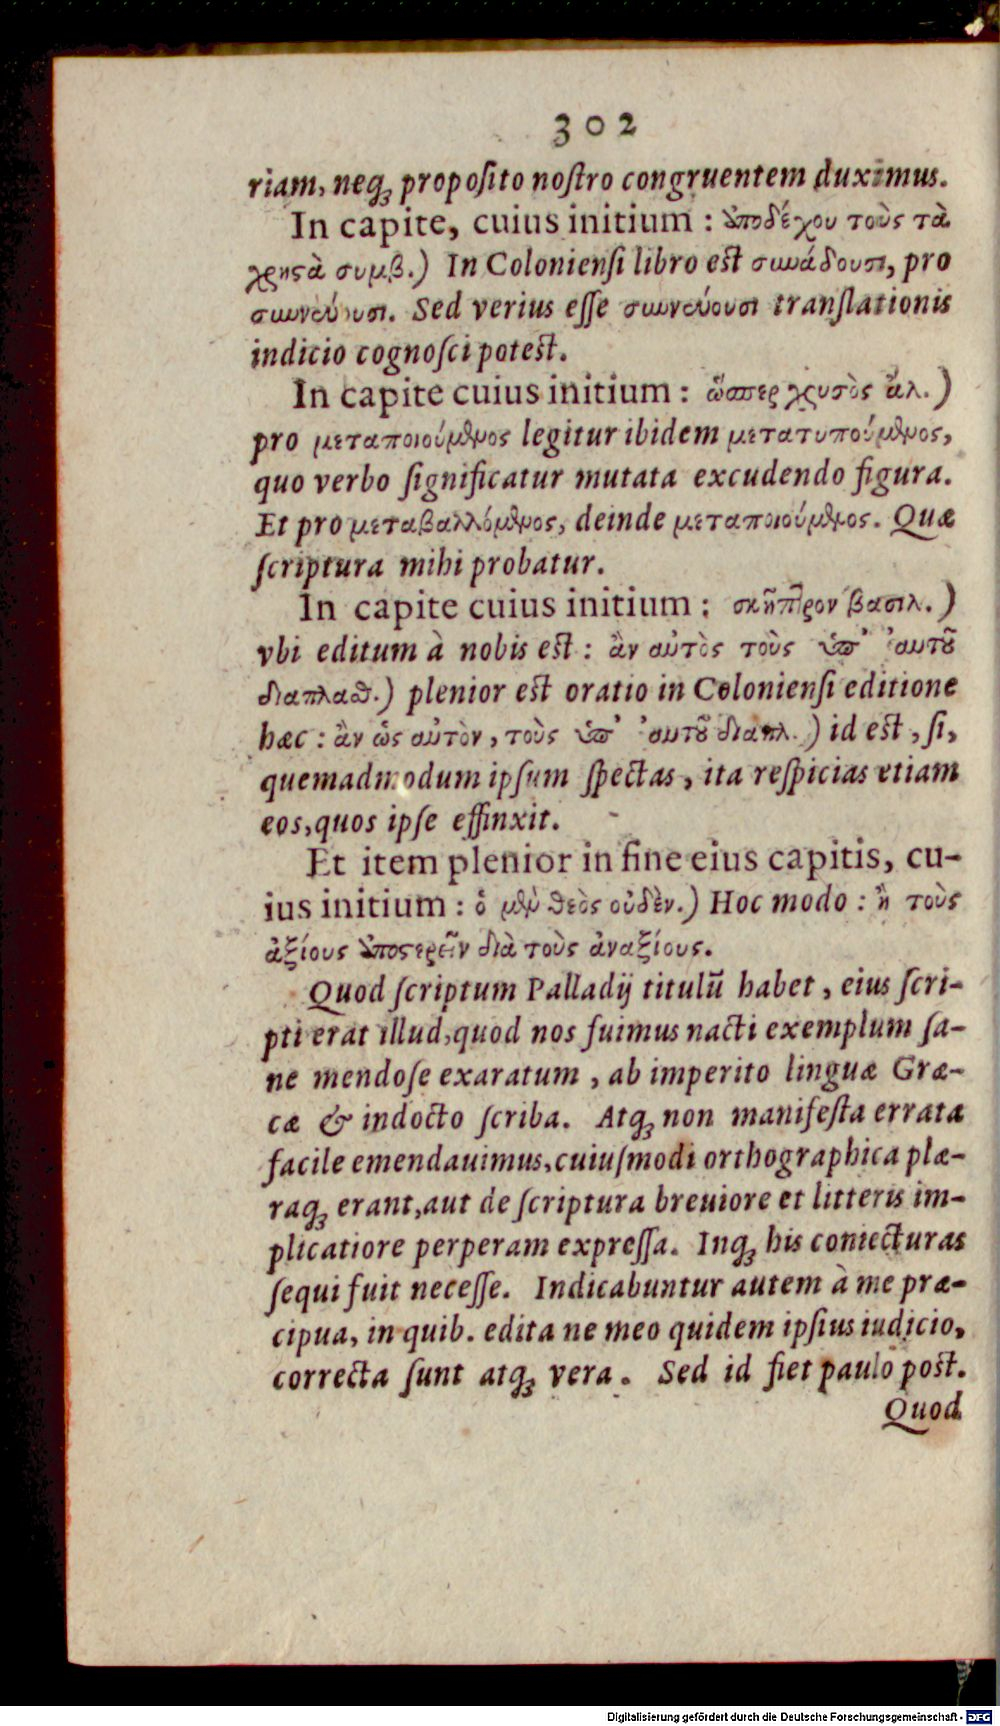 302
riam, neq́ꝫ proposito nostro congruentem duximus.
In capite, cuius initium : ὑποδέχου τοὺς τὰ
χρηστὰ συμβ.) In Coloniensi libro est συνάδουσι, pro
συννεύουσι. Sed verius esse συννεύουσι translationis
indicio cognosci potest.
In capite cuius initium : ὥσπερ χρυσὸς ἄλ.)
pro μεταποιούμενος legitur ibidem μετατυπούμενος,
quo verbo significatur mutata excudendo figura.
Et pro μεταβαλλόμενος, deinde μεταποιούμενος. Quæ
scriptura mihi probatur.
In capite cuius initium : σκῆπτρον βασιλ.)
vbi editum à nobis est : ἂν αὐτὸς τοὺς ὑπ' αὐτοῦ
διαπλαθ.) plenior est oratio in Coloniensi editione
hæc : ἂν ὡς αὐτὸν, τοὺς ὑπ' αὐτοῦ διαπλ.) id est, si,
quemadmodum ipsum spectas, ita respicias etiam
eos, quos ipse effinxit.
Et item plenior in fine eius capitis, cu-
ius initium : ὁ μὲν θεὸς οὐδὲν.) Hoc modo : ἢ τοὺς
ἀξίους ὑποστερεῖν διὰ τοὺς ἀναξίους.
Quod scriptum Palladij titulū habet, eius scri-
pti erat illud, quod nos fuimus nacti exemplum sa-
ne mendose exaratum, ab imperito linguæ Græ-
cæ & indocto scriba. Atq́ꝫ non manifesta errata
facile emendauimus, cuiusmodi orthographica plæ-
raq́ꝫ erant, aut de scriptura breuiore et litteris im-
plicatiore perperam expressa. Inq́ꝫ his coniecturas
sequi fuit necesse. Indicabuntur autem à me præ-
cipua, in quib. edita ne meo quidem ipsius iudicio,
correcta sunt atq́ꝫ vera. Sed id fiet paulo post.
Quod
Digitalisierung gefördert durch die Deutsche Forschungsgemeinschaft - DFG